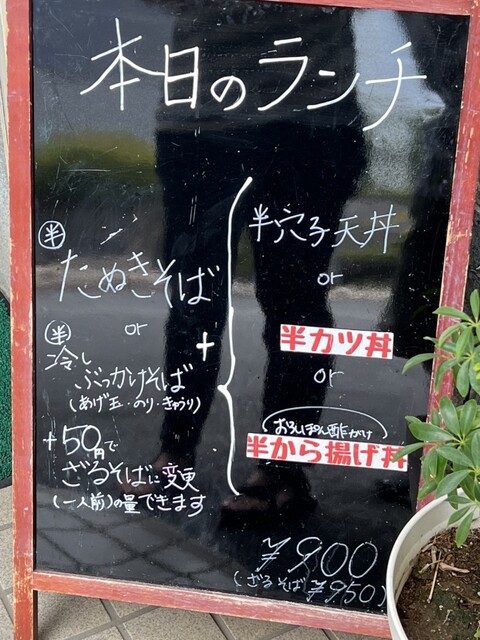 本日のランチ
半
たぬきそば
or
半
冷し
ぶっかけそば
(あげ玉・のり・きゅうり)
+50円で
ざるそばに変更
(一人前)の量できます
+
半穴子天丼
or
半カツ丼
or
おろしぽん酢がけ
半から揚げ丼
¥900
(ざるそば¥950)